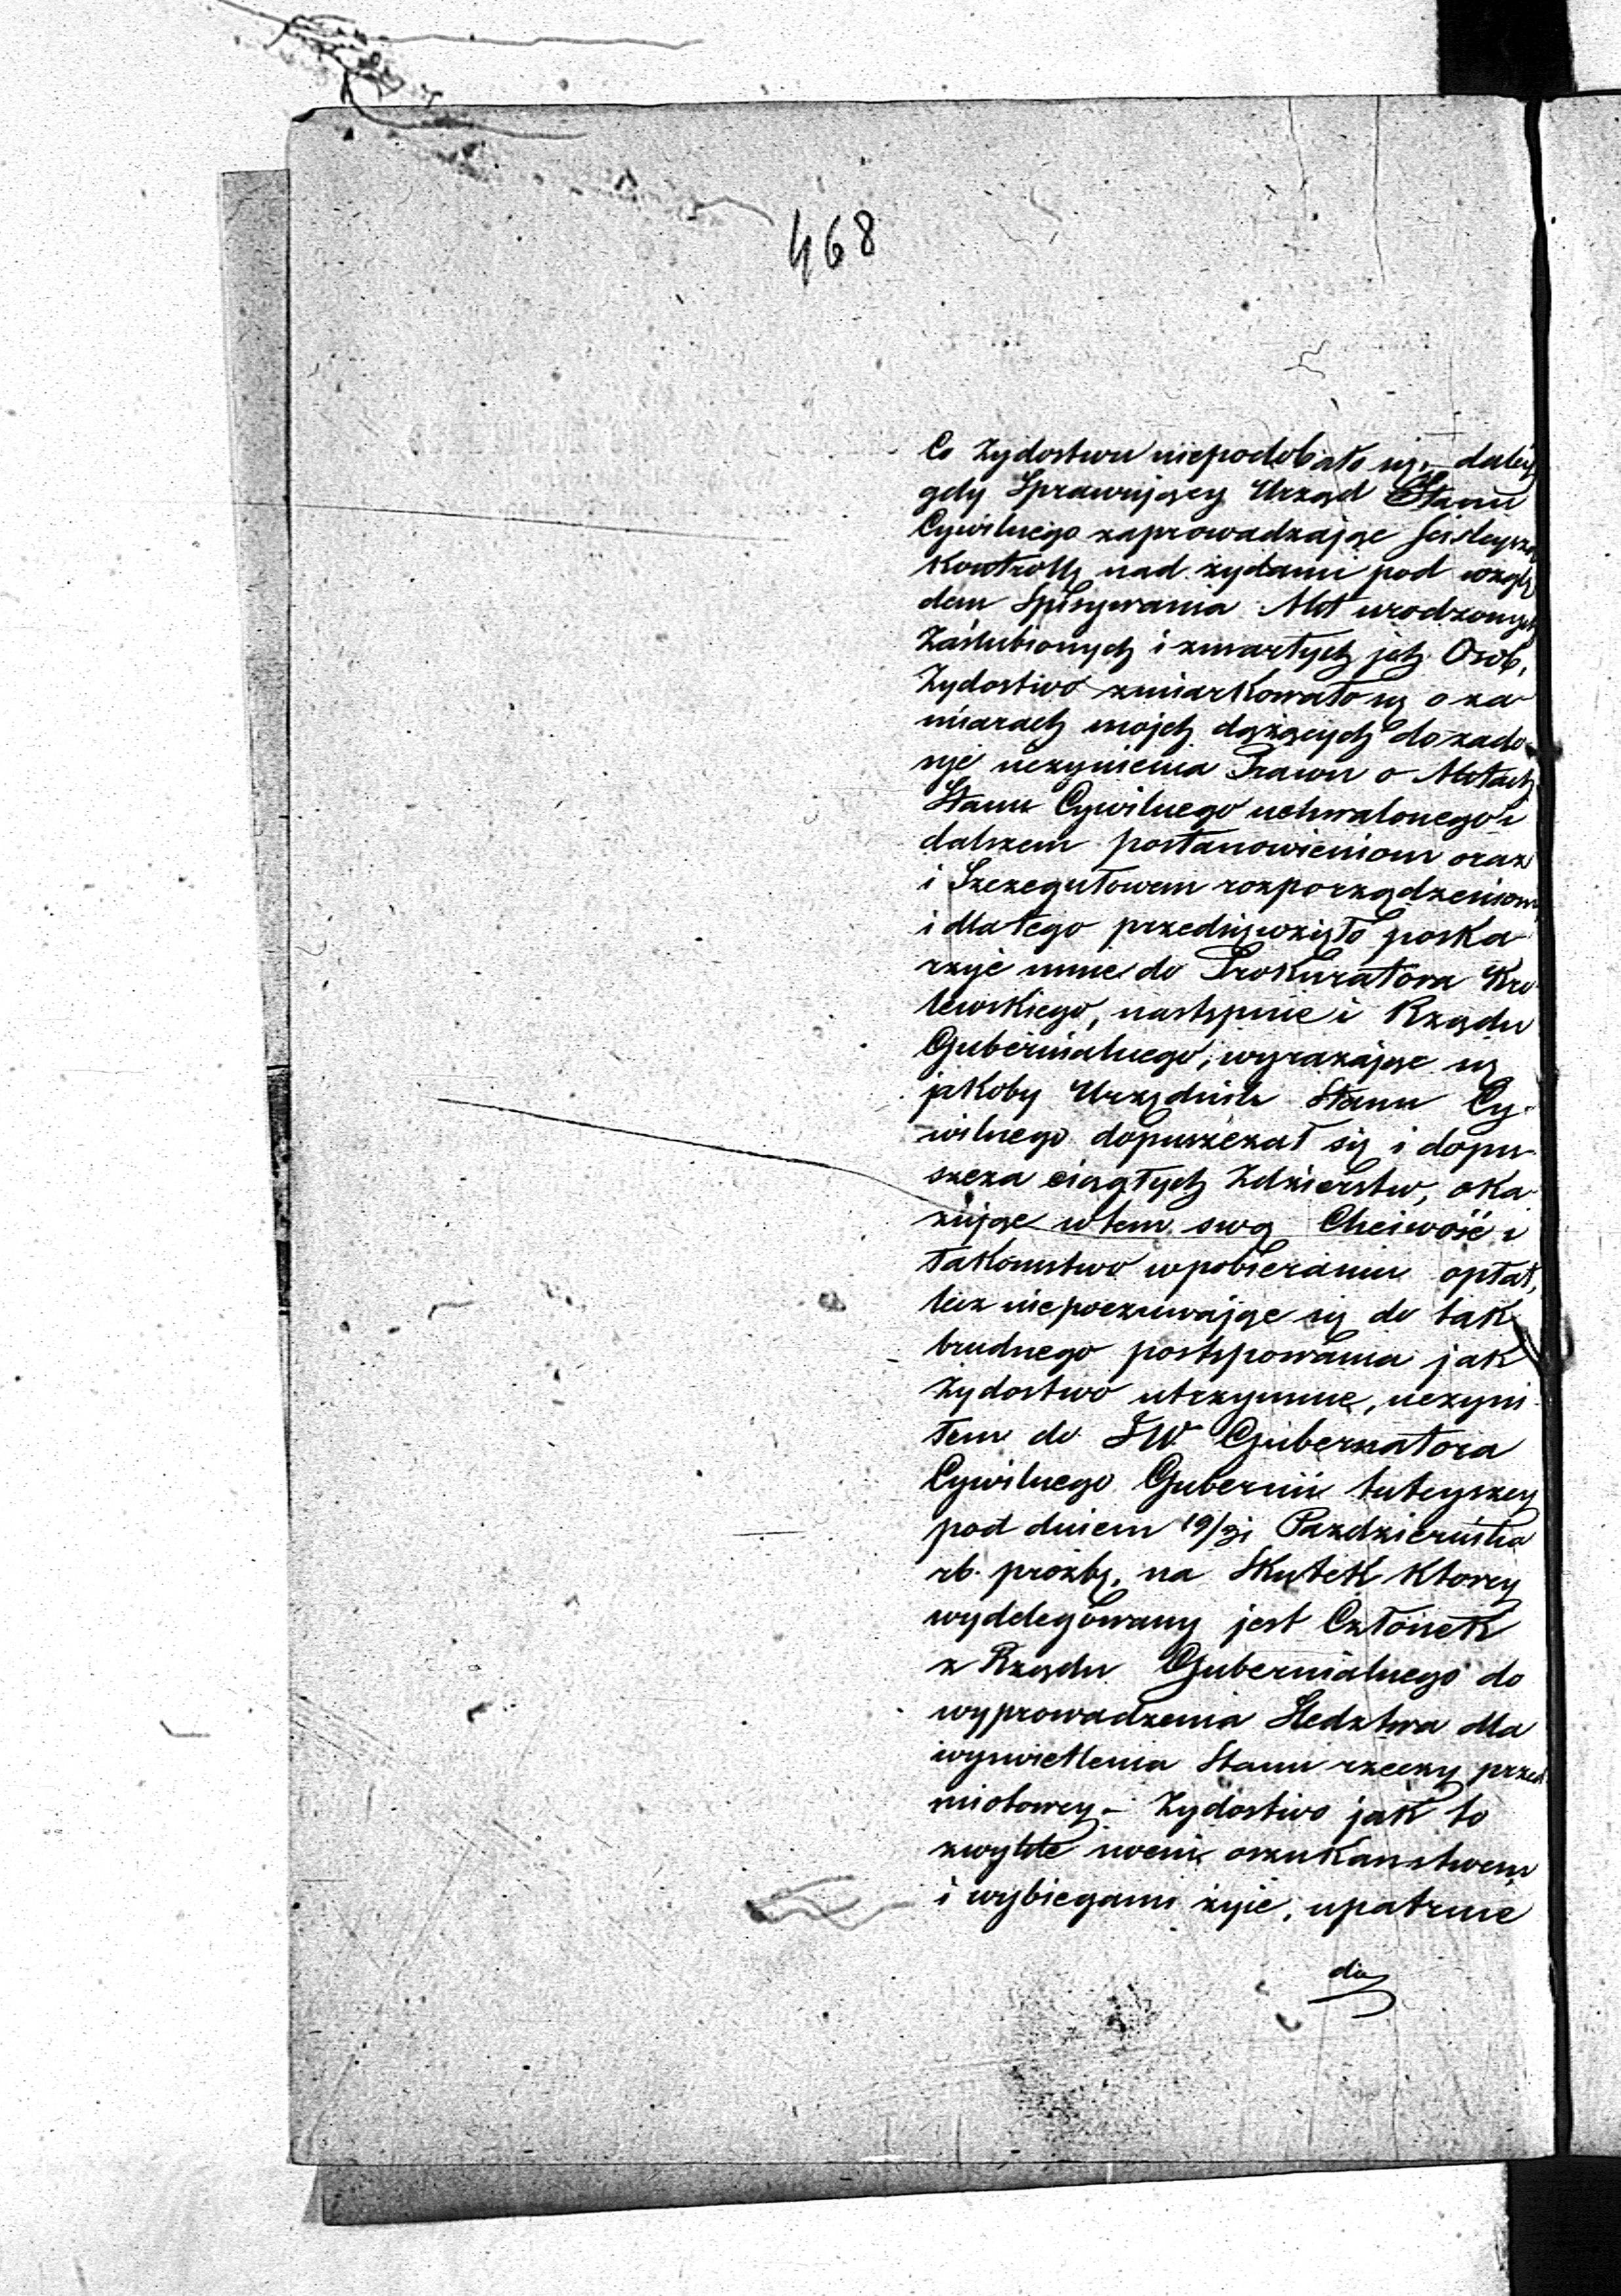 468
Co Żydostwu niepodobało się, – daléy
gdy Sprawujący Urząd Stanu
Cywilnego zaprowadzając ściśleyszą
Kontrollę nad żydami pod wzglę
dem Spisywania Akt urodzonych
Zaślubionych i zmartych jch Osob,
Żydostwo zmiarkowało się o za-
miarach mojch dążących do zado-
syć uczynienia Prawu o Aktach
Stanu Cywilnego uchwalonego i
dalszem postanowieniom oraz
i Szczegułowem rozporządzeniom
i dla tego przedsięwzięło poska-
rzyć mnie do Prokuratora Kró-
lewskiego, następnie i Rządu
Gubernialnego, wyrażając się
jakoby Urzędnik Stanu Cy-
wilnego dopuszczał się i dopu-
szcza ciągłych Zdzierstw, oka-
zując w tem swą Chciwość i
łakomstwo w pobieraniu opłat,
lecz niepoczuwając się do tak
brudnego postępowania jak
Żydostwo utrzymuie, uczyni-
łem do JW Gubernatora
Cywilnego Gubernii tuteyszey
pod dniem 19/31 Pazdziernika
rb. prozbę, na Skutek Ktorey
wydelegowany jest Członek
z Rządu Gubernialnego do
wyprowadzenia Sledztwa dla
wyswietlenia Stanu rzeczy przed
miotowey – Żydostwo jak to
zwykle swem oszukanstwem
i wybiegami żyie, upatruie